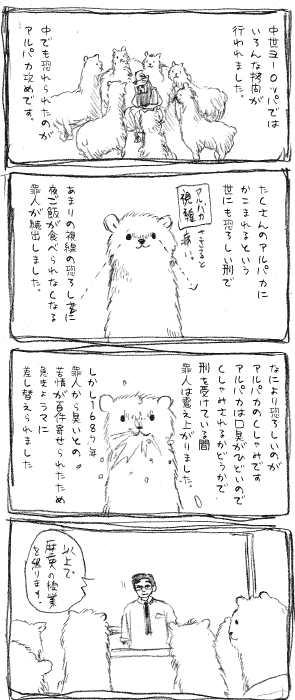 中世ヨーロッパでは
いろんな拷問が
行われました。
中でも恐れられたのが
アルパカ攻めです。
たくさんのアルパカに
かこまれるという
世にも恐ろしい刑で
アルパカ
視線
痛い。
あまりの視線の恐ろしさに
夜ご飯が食べられなくなる
罪人が続出しました。
なにより恐ろしいのが
アルパカのくしゃみです
アルパカは口臭がひどいので
くしゃみされるかどうかで
刑を受けている間
罪人は震え上がりました。
しかし1687年
罪人から臭いとの
苦情が百件寄せられたため
急きょラマに
差し替えられました
以上で
歴史の授業
を終ります。